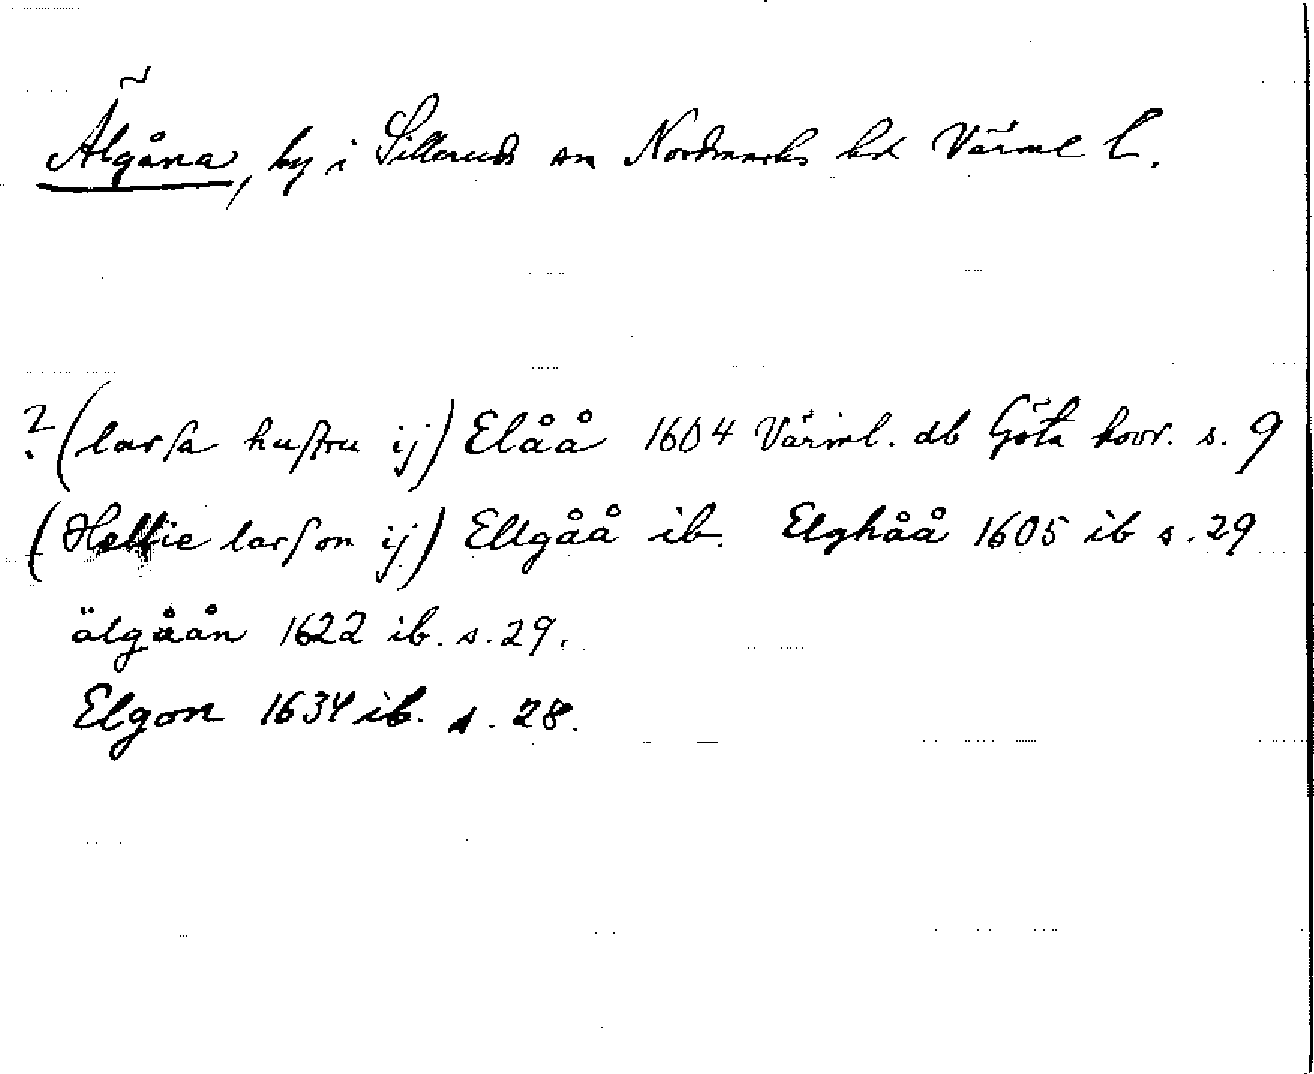 Älgåna, by i Silleruds sn Nordmarks hd Värml l.
? (larſa huſtru ij) Elåå 1604 Värml. db Göta hovr. s. 9
(Hellie larſon ij) Ellgåå ib. Elghåå 1605 ib s. 29
älgåån 1622 ib. s. 29.
Elgon 1634 ib. s. 28.